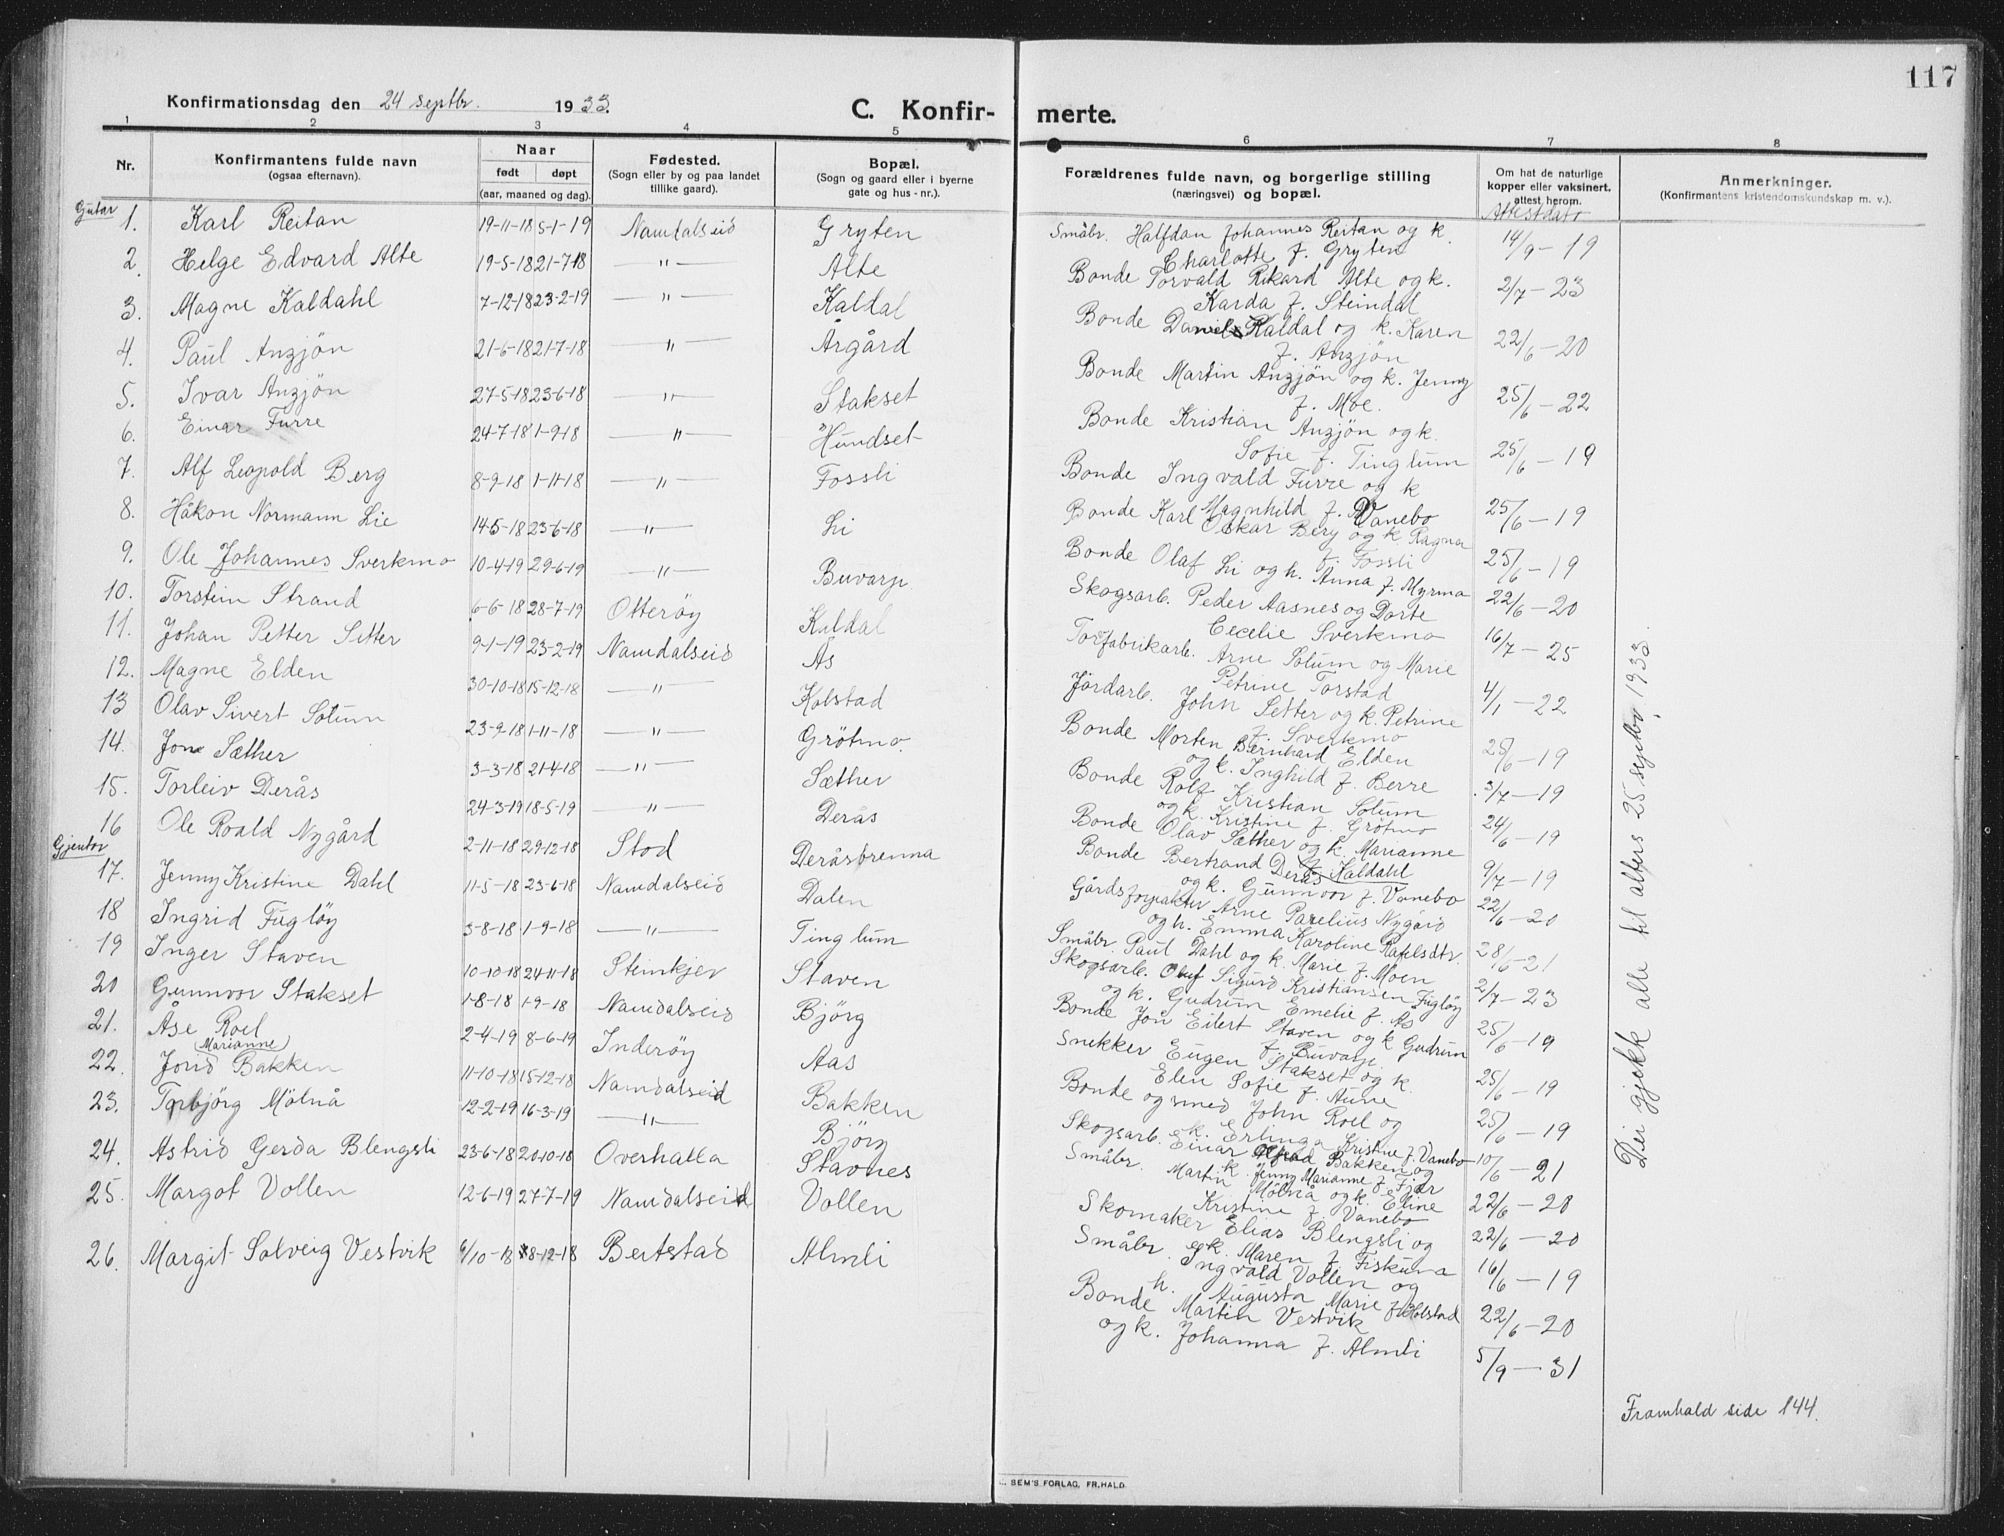 117
Konfirmationsdag den 24 septbr. 1933.
C. Konfir- merte.
1 2 3 4 5 6 7 8
Nr.
Konfirmantens fulde navn
(ogsaa efternavn).
Naar
født døpt
(aar, maaned og dag).
Fødested.
(Sogn eller by og paa landet
tillike gaard).
Bopæl.
(Sogn og gaard eller i byerne
gate og hus - nr.).
Forældrenes fulde navn, og borgerlige stilling
(næringsvei) og bopæl.
Om hat de naturlige
kopper eller vaksinert.
attest herom.
Attestdato
Anmerkninger.
(Konfirmantens kristendomskundskap m. v.).
Gutar
1. Karl Reitan 19-11-18 5-1-19 Namdalseid Gryten
2. Helge Edvard Alte 19-5-18 21-7-18 —"— Alte
3. Magne Kaldahl 7-12-18 23-2-19 —"— Kaldal
4. Paul Anzjön 21-6-18 21-7-18 —"— Årgård
5. Ivar Anzjön 27-5-18 23-6-18 —"— Stakset
6. Einar Furre 24-7-18 1-9-18 —"— Hundset
7. Alf Leopold Berg 8-9-18 1-11-18 —"— Fossli
8. Håkon Normann Lie 14-5-18 23-6-18 —"— Li
9. Ole Johannes Sverkmo 10-4-19 29-6-19 —"— Buvarp
10. Torstein Strand 6-6-18 28-7-19 Otterøy Kaldal
11. Johan Petter Setter 9-1-19 23-2-19 Namdalseid Ås
12. Magne Elden 30-10-18 15-12-18 —"— Kolstad
13 Olav Sivert Solum 23-9-18 1-11-18 —"— Grötmo.
14. Jon Sæther 3-3-18 21-4-18 —"— Sæther
15. Torleiv Derås 24-3-19 18-5-19 —"— Derås
16 Ole Roald Nygård 2-11-18 29-12-18 Stod Deråsbrenna
Gjentor
17. Jenny Kristine Dahl 11-5-18 23-6-18 Namdalseid Dalen
18 Ingrid Fugløy 3-8-18 1-9-18 —"— Tinglum
19 Inger Staven 10-10-18 24-11-18 Steinkjer Staven
20 Gunnvor Stakset 1-8-18 1-9-18 Namdalseid Bjørg
21. Åse Roel 2-4-19 8-6-19 Inderøy Aas
(Marianne)
22. Jorid Bakken 11-10-18 15-12-18 Namdalseid Bakken
23. Torbjörg Mölnå 12-2-19 16-3-19 —"— Bjørg
24. Astrid Gerda Blengsli 23-6-18 20-10-18 Overhalla Stavnes
25. Margot Vollen 12-6-19 27-7-19 Namdalseid Vollen
26. Margit Solveig Vestvik 6/10-18 8-12-18 Beitstad Almli
Småbr. Halfdan Johannes Reitan og k. 14/9-19
Charlotte f. Gryten
Bonde Torvald Rikard Alte og k. 2/7-23
Karda f. Steindal
Bonde Daniel Kaldal og k. Karen 22/6-20
f. Anzjön
Bonde Martin Anzjön og k. Jenny 25/6-22
f. Moe.
Bonde Kristian Anzjön og k. 25/6-19
Sofie f. Tinglum
Bonde Ingvald Furre og k 25/6-19
Magnhild f. Vanebo
Bonde Karl Oskar Berg og k Ragna 25/6-19
f. Fossli
Bonde Olaf Li og h. Anna f. Myrmo 22/6-20
Skogsarb. Peder Aasnes og Dorte 16/7-25
Cecelie Sverkmo
Torfabrikarb. Arne Solum og Marie 4/1-22
Petrine Torstad
Jordarb. John Setter og k. Petrine 25/6-19
f. Sverkmo
Bonde Morten Bernhard Elden 3/7-19
og k. Inghild f. Berre
Bonde Rolf Kristian Solum 24/6-19
og k. Kristine f. Grötmo
Bonde Olav Sæther og k. Marianne 9/7-19
f. Kaldahl
Bonde Bertrand Derås 22/6-20
og k. Gunnvor f. Vanebo
Gårdsforpakter Arne Parelius Nygård 28/6-21
og h. Emma Karoline Rafelsdtr.
Småbr. Paul Dahl og k. Marie f. Moen 2/7-23
Skogsarb. Oluf Sigurd Kristiansen Fugløy 25/6-19
og k. Gudrun Emelie f. As
Bonde Jon Eilert Staven og k Gudrun 25/6-19
f. Buvarp.
Snekker Eugen Stakset og k. 25/6-19
Elen Sofie f. Aune
Bonde og smed John Roel og 10/6-21
k. Erlinga Kristine f. Vanebo
Skogsarb. Einar Bakken og 22/6-20
k. Jenny Marianne f. Fjær
Småbr. Martin Mölnå og k. Eline 22/6-20
Kristine f. Vanebo
Skomaker Elias Blengsli og 16/6-19
k. Maren f. Fiskum
Småbr. Ingvald Vollen og 22/6-20
h. Augusta Marie f. Holstad
Bonde Martin Vestvik 5/9-31
og k. Johanna f. Almli
Dei gjekk alle til alters 25 septbr. 1933.
Framhald side 144.
SEM'S FORLAG, FR.HALD